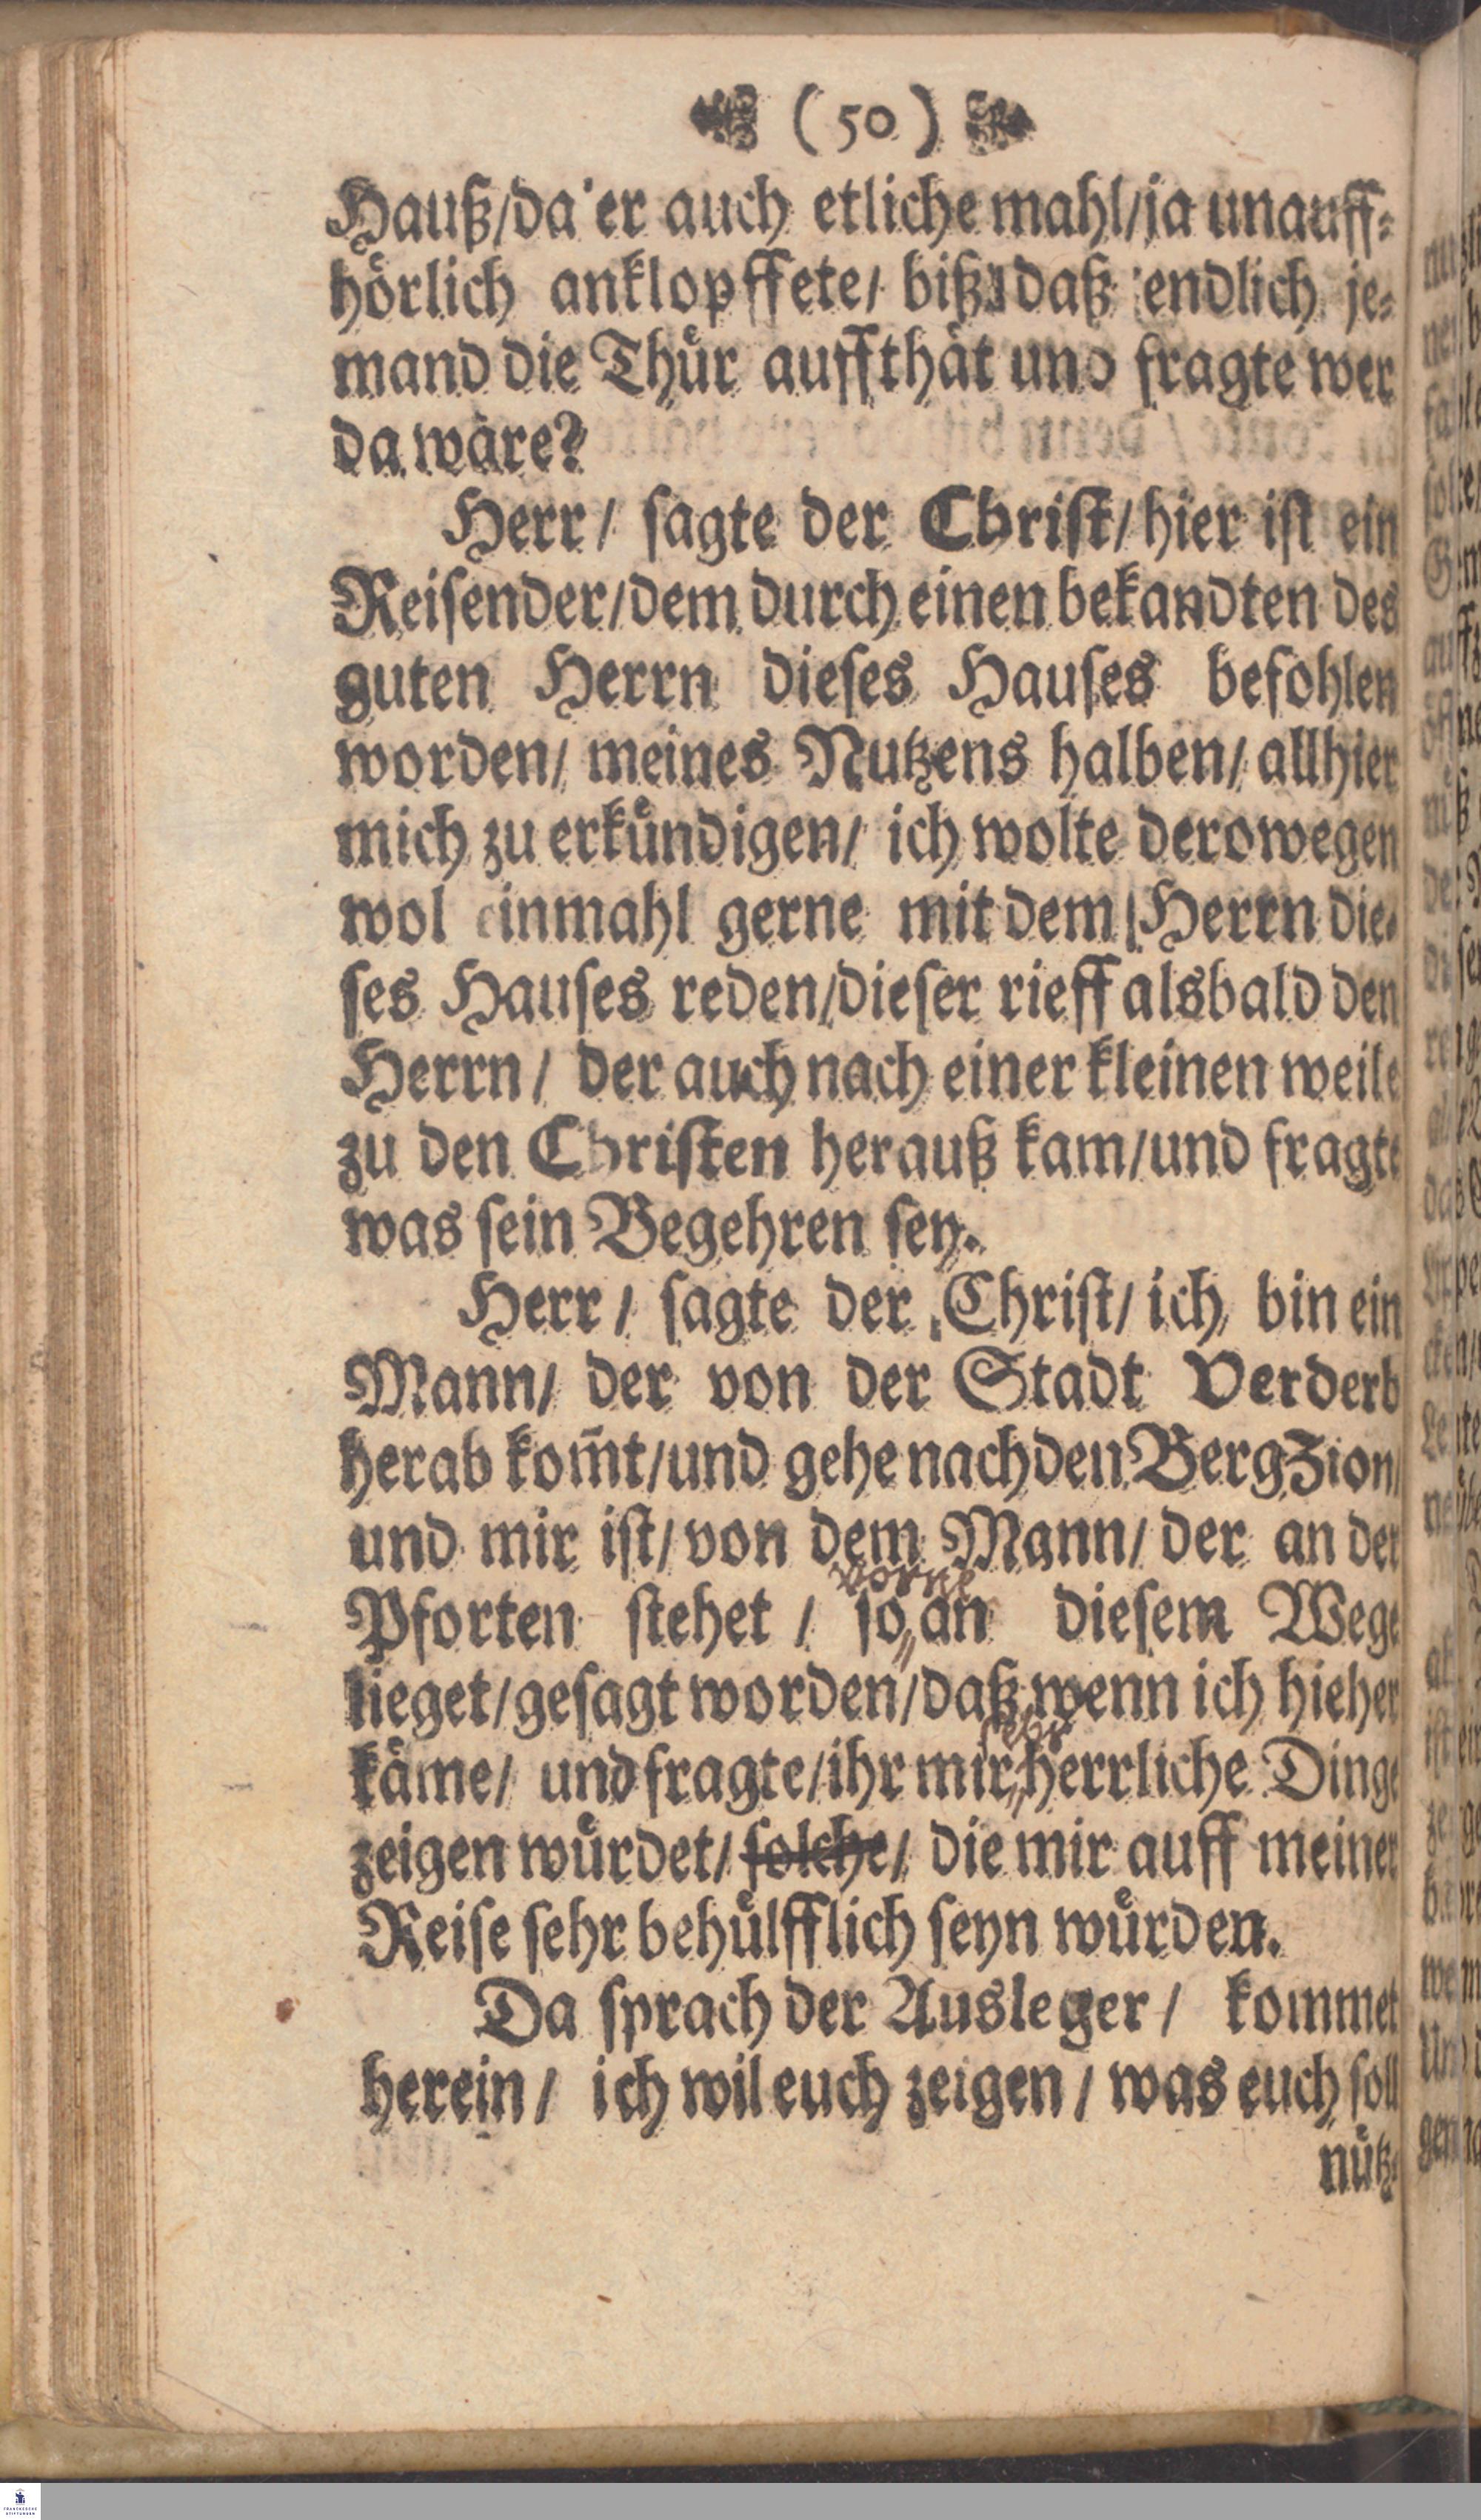 (50)
Hauß/da er auch etliche mahl/ja unauff-
hörlich anklopffete/ biß daß endlich je-
mand die Thür auffthät und fragte wer
da wäre?
Herr/ sagte der Christ/hier ist ein
Reisender/dem durch einen bekandten des
guten Herrn dieses Hauses befohlen
worden/ meines Nutzens halben/ allhier
mich zu erkündigen/ ich wolte derowegen
wol einmahl gerne mit dem Herrn die-
ses Hauses reden/dieser rieff alsbald den
Herrn/ der auch nach einer kleinen weile
zu den Christen herauß kam/und fragte
was sein Begehren sey.
Herr/ sagte der Christ/ ich bin ein
Mann/ der von der Stadt Verderb
herab kom̃t/und gehe nach den Berg Zion/
und mir ist/von dem Mann/ der an der
vorne
Pforten stehet / so an diesem Wege
lieget/gesagt worden/daß wenn ich hieher
sehr
käme/ und fragte/ihr mir herrliche Dinge
zeigen würdet/ solche/ die mir auff meiner
Reise sehr behülfflich seyn würden.
Da sprach der Ausleger/ kommet
herein/ ich wil euch zeigen/ was euch soll
nütz-
FRANCKESCHE
STIFTUNGEN